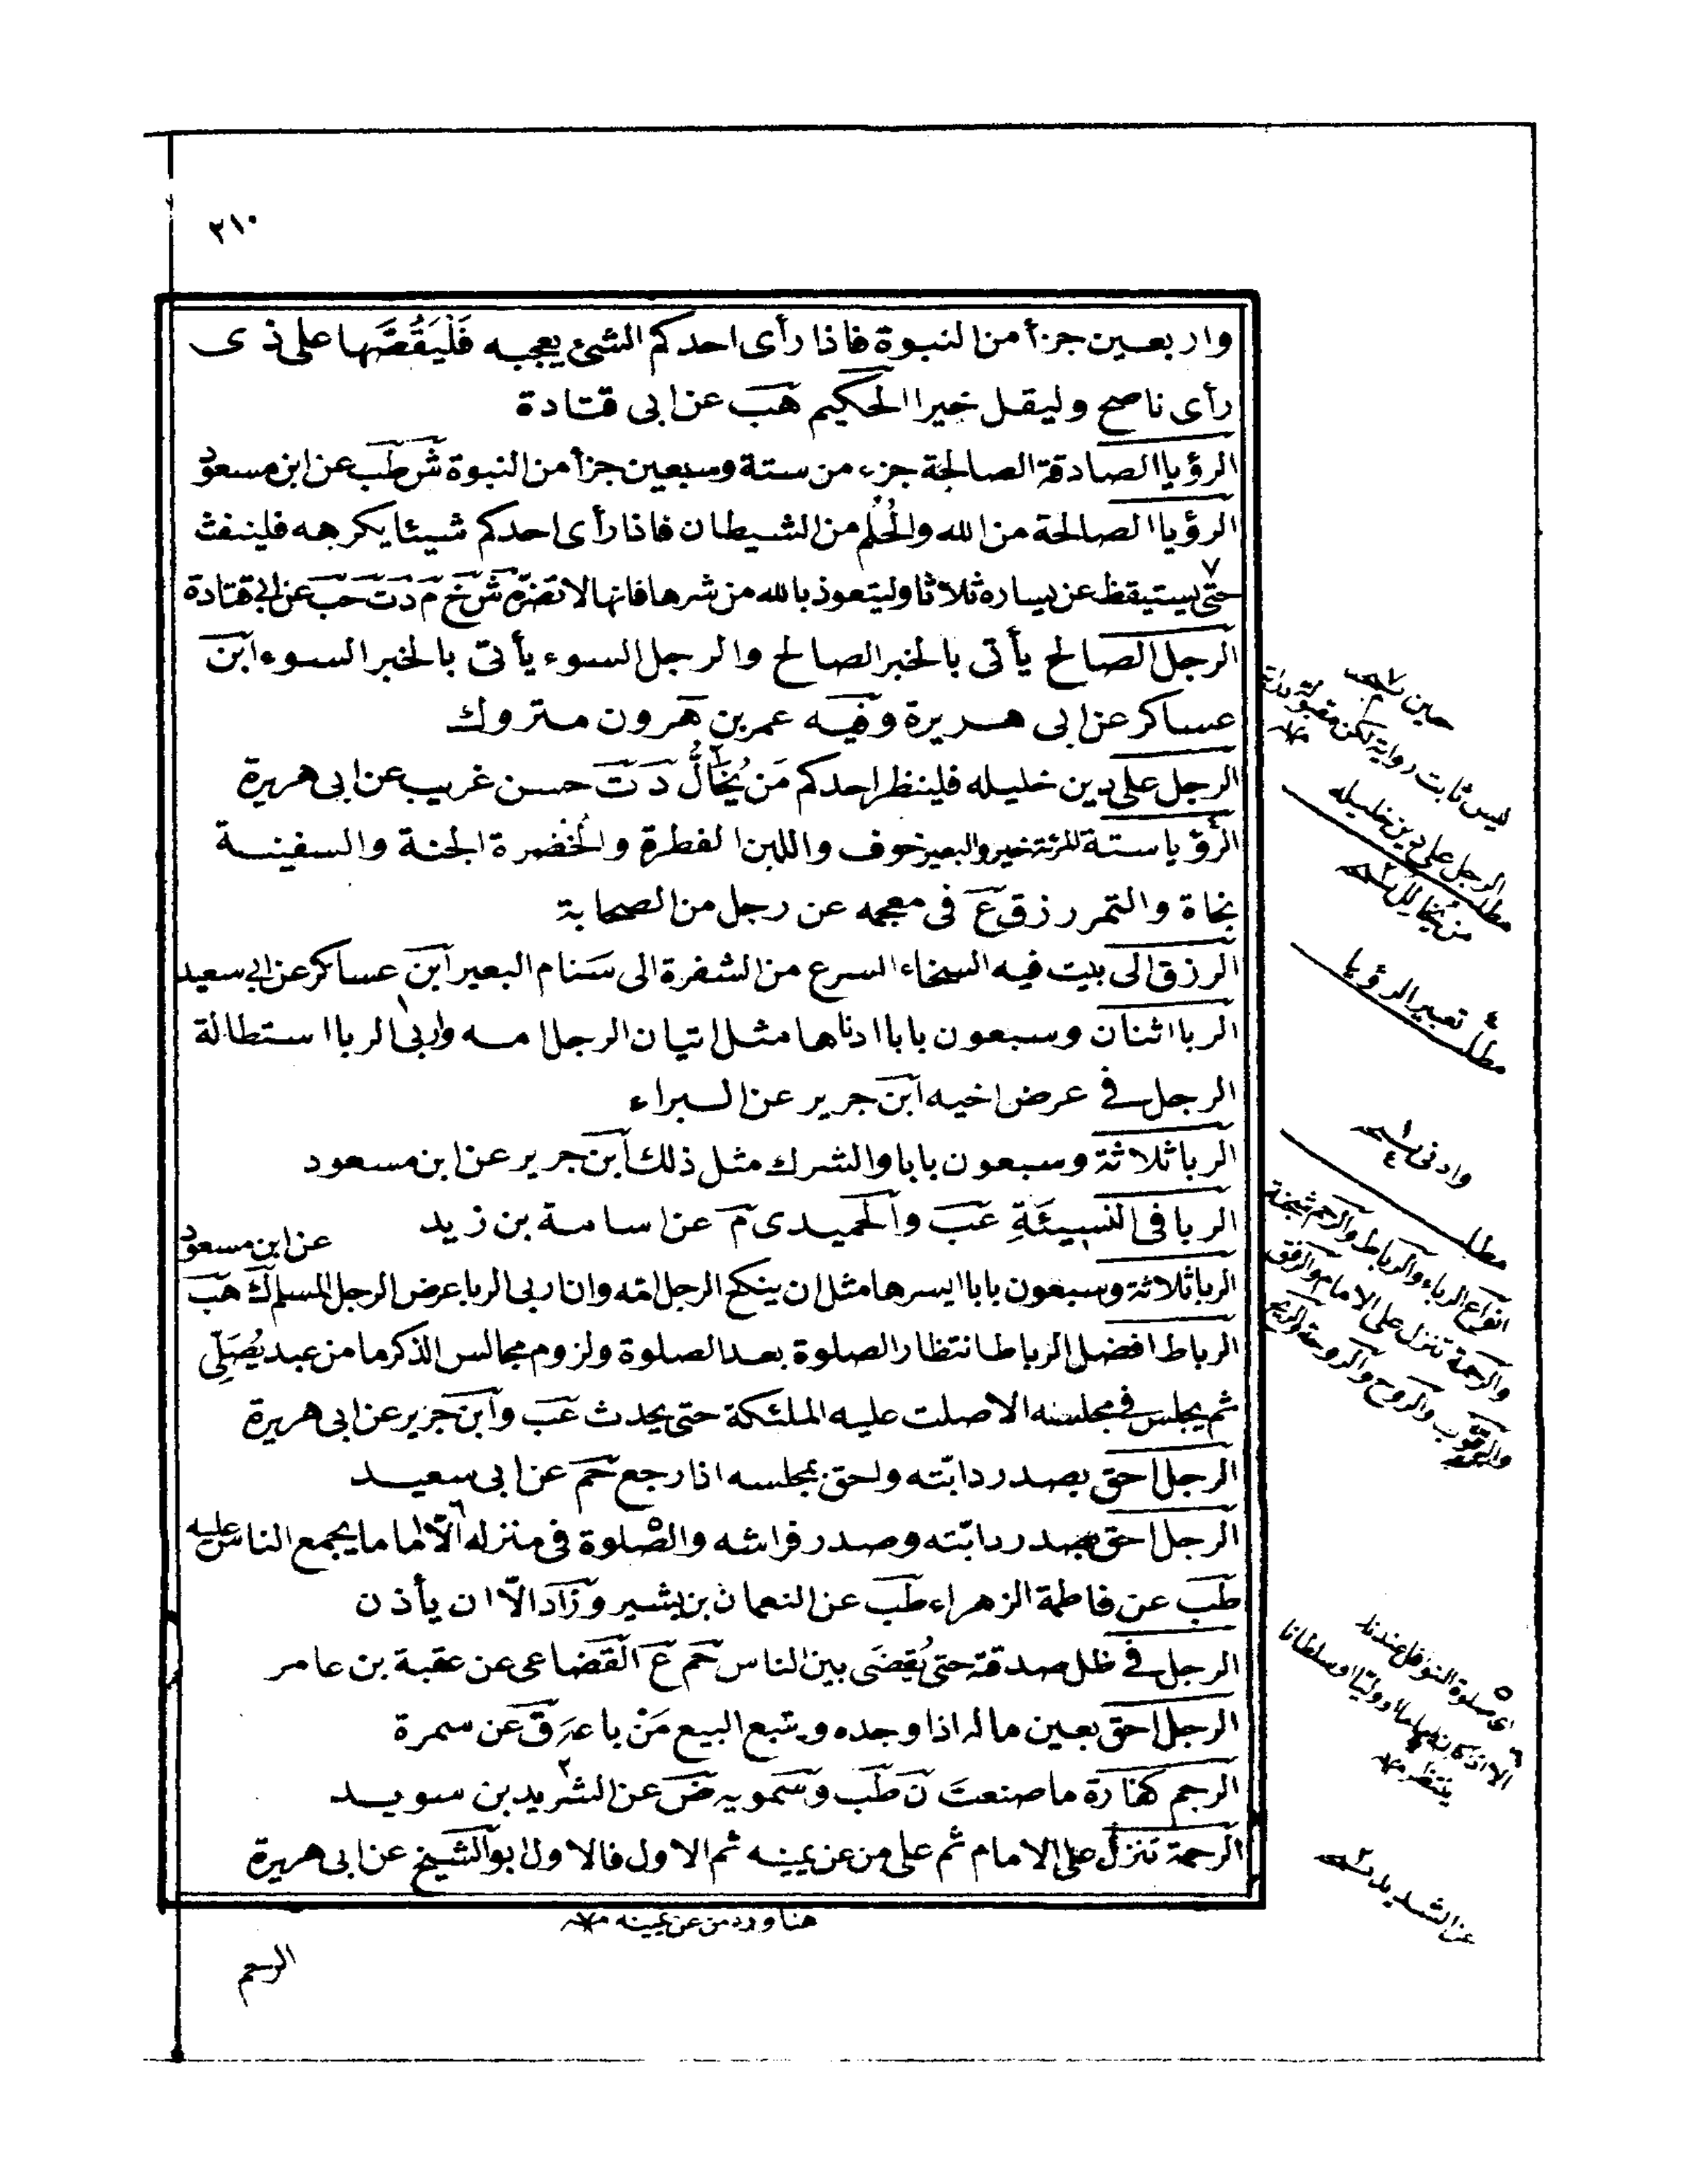 ٣١٠
واربعين جزأ من النبوة فاذا رأى احدكم الشئ يعجبه فَلْيَقُصَّها على ذى
رأى ناصح وليقل خيرا الحكيم هب عن ابى قتادة
الرؤيا الصادقة الصالحة جزء من ستة وسبعين جزأ من النبوة ش طب عن ابن مسعود
الرؤيا الصالحة من الله والحُلُم من الشيطان فاذا رأى احدكم شيئا يكرهه فلينفث
حتى يستيقظ عن يساره ثلاثا وليتعوذ بالله من شرها فانها لا تضره ش خ م د ت حب عن ابى قتادة
الرجل الصالح يأتى بالخبر الصالح والرجل السوء يأتى بالخبر السوء ابن
عساكر عن ابى هريرة وفيه عمر بن هرون متروك
الرجل على دين خليله فلينظر احدكم مَن يُخَالُّ د ت حسن غريب عن ابى هريرة
الرؤيا ستة للمرئة خير والبعير خوف واللبن الفطرة والخُضرة الجنة والسفينة
نجاة والتمر رزق ع فى معجمه عن رجل من الصحابة
الرزق الى بيت فيه السخاء اسرع من الشفرة الى سَنام البعير ابن عساكر عن ابى سعيد
الربا اثنان وسبعون بابا ادناها مثل اتيان الرجل امه واربى الربا استطالة
الرجل فى عرض اخيه ابن جرير عن البراء
الربا ثلاثة وسبعون بابا والشرك مثل ذلك ابن جرير عن ابن مسعود
الربا فى النسيئةِ عب والحميدى م عن اسامة بن زيد
عن ابن مسعود
الربا ثلاثة وسبعون بابا ايسرها مثل ان ينكح الرجل امّه وان اربى الربا عرض الرجل المسلم ك هب
الرباط افضل الرباط انتظار الصلوة بعد الصلوة ولزوم مجالس الذكر ما من عبد يُصَلِّى
ثم يجلس فى مجلسه الا صلت عليه الملئكة حتى يحدث عب وابن جرير عن ابى هريرة
الرجل احق بصدر دابّته واحق بمجلسه اذا رجع حم عن ابى سعيد
الرجل احق بصدر دابّته وصدر فراشه والصّلوة فى منزله الّا اماما يجمع الناس عليه
طب عن فاطمة الزهراء طب عن النعمان بن بشير وزاد الّا ان يأذن
الرجل فى ظل صدقته حتى يُقضَى بين الناس حم ع القضاعى عن عقبة بن عامر
الرجل احق بعين ماله اذا وجده ويتبع البيع مَنْ باعه ق عن سمرة
الرجم كفارة ما صنعت ن طب وسمويه ض عن الشريد بن سويد
الرحمة تنزل على الامام ثم على من عن يمينه ثم الاول فالاول ابو الشيخ عن ابى هريرة
هنا ورد من عن يمينه
الرحم
ليس ثابت رواية لكن
مطلب الرجل على دين خليله
من يُخالل
مطلب تعبير الرؤيا
وادنى
مطلب
انواع الرباء والرباط والرحم شجنة
والرحمة تنزل على الامام والرفق
اى صلوة النوافل عنده
ينتظر
عن الشديد